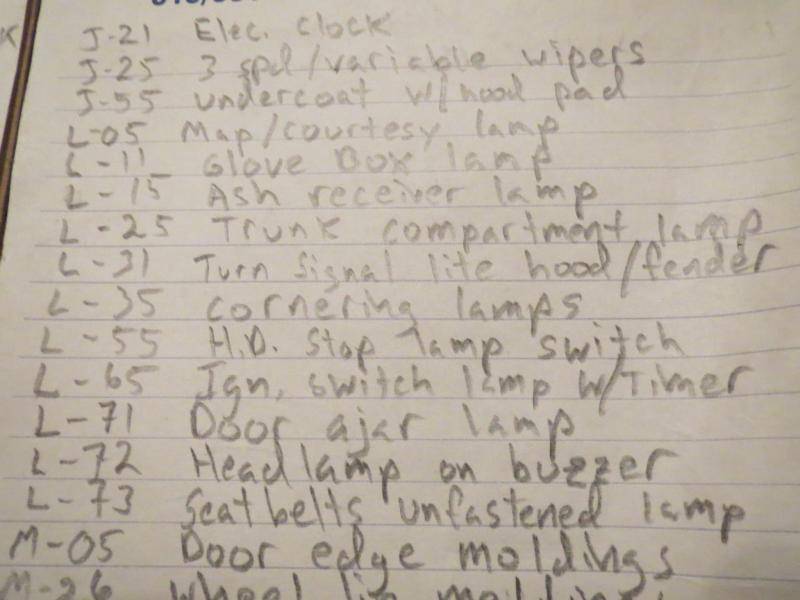 J-21 Elec. clock
J-25 3 spd/variable wipers
J-55 undercoat w/hood pad
L-05 Map/courtesy lamp
L-11 Glove Box lamp
L-15 Ash receiver lamp
L-25 Trunk compartment lamp
L-31 Turn signal lite hood/fender
L-35 cornering lamps
L-55 H.D. Stop lamp switch
L-65 Ign. switch lamp w/Timer
L-71 Door ajar lamp
L-72 Headlamp on buzzer
L-73 Seatbelts unfastened lamp
M-05 Door edge moldings
M-26 Wheel lip moldings